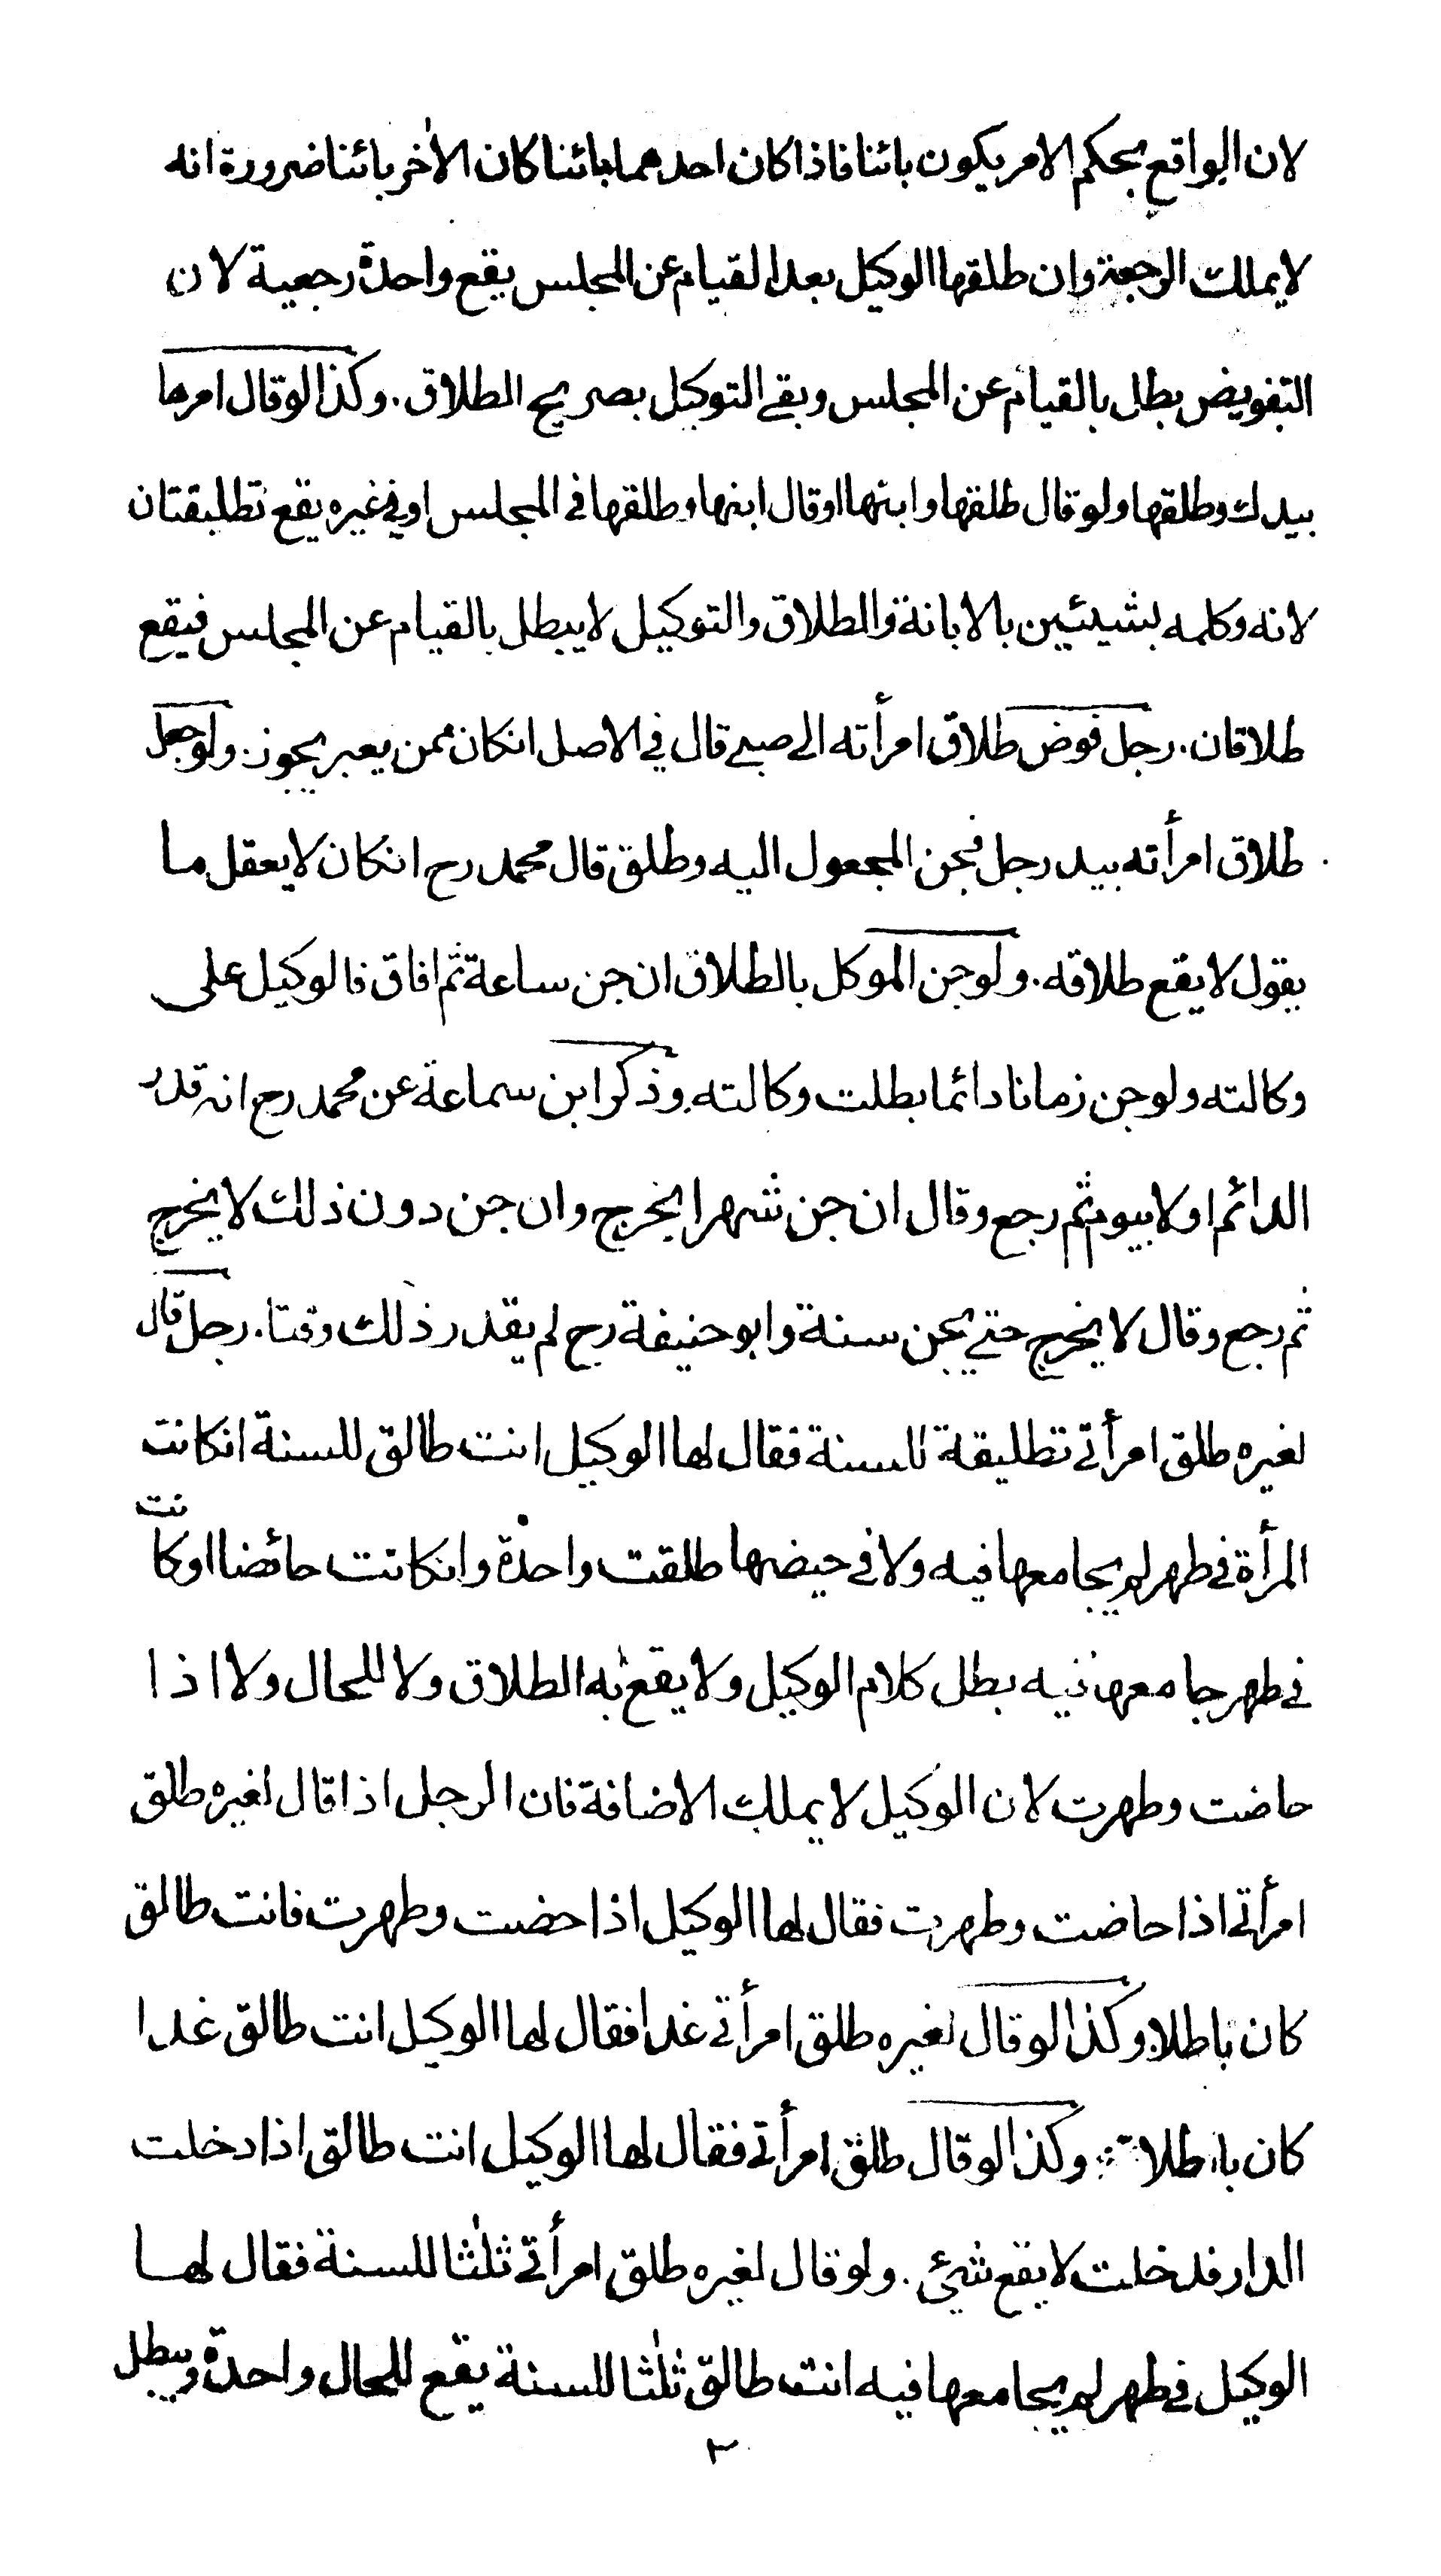 لان الواقع بحكم الامر يكون بائنا فاذا كان احدهما بائنا كان الاٰخر بائنا ضرورة انه
لا يملك الرجعة وان طلقها الوكيل بعد القيام عن المجلس يقع واحدة رجعية لان
التفويض بطل بالقيام عن المجلس وبقے التوكيل بصريح الطلاق. وكذا لو قال امرها
بيدك وطلقها ولو قال طلقها وابنها او قال ابنها وطلقها في المجلس او في غيره يقع تطليقتان
لانه وكله بشيئين بالابانة والطلاق والتوكيل لا يبطل بالقيام عن المجلس فيقع
طلاقان. رجل فوض طلاق امرأته الى صبے قال في الاصل انكان ممن يعبر يجوز. ولو جعل
طلاق امرأته بيد رجل فجن المجعول اليه وطلق قال محمد رح انكان لا يعقل ما
يقول لا يقع طلاقه. ولو جن الموكل بالطلاق ان جن ساعة ثم افاق فالوكيل على
وكالته ولو جن زمانا دائما بطلت وكالته. وذكر ابن سماعة عن محمد رح انه قدر
الدائم اولا بيوم ثم رجع وقال ان جن شهرا يخرج وان جن دون ذلك لا يخرج
ثم رجع وقال لا يخرج حتے يجن سنة وابو حنيفة رح لم يقدر ذلك وقتا. رجل قال
لغيره طلق امرأتي تطليقة للسنة فقال لها الوكيل انت طالق للسنة انكانت
المرأة في طهر لم يجامعها فيه ولا في حيضها طلقت واحدة وانكانت حائضا او كانت
في طهر جامعها فيه بطل كلام الوكيل ولا يقع به الطلاق ولا للحال ولا اذا
حاضت وطهرت لان الوكيل لا يملك الاضافة فان الرجل اذا قال لغيره طلق
امرأتي اذا حاضت وطهرت فقال لها الوكيل اذا حضت وطهرت فانت طالق
كان باطلا. وكذا لو قال لغيره طلق امرأتي غدا فقال لها الوكيل انت طالق غدا
كان باطلا. وكذا لو قال طلق امرأتي فقال لها الوكيل انت طالق اذا دخلت
الدار فدخلت لا يقع شيئ. ولو قال لغيره طلق امرأتي ثلٰثا للسنة فقال لها
الوكيل في طهر لم يجامعها فيه انت طالق ثلٰثا للسنة يقع للحال واحدة ويبطل